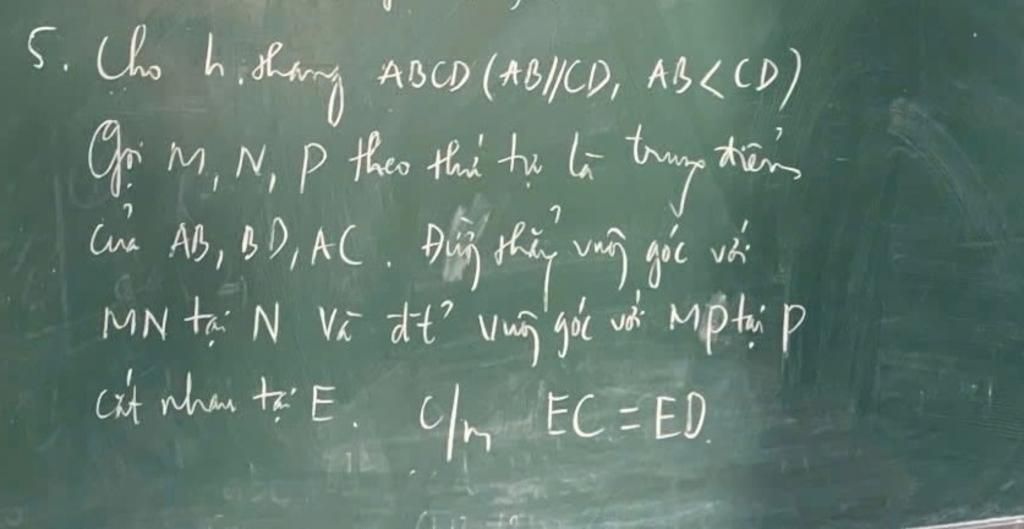 5. Cho h.thang ABCD (AB//CD, AB < CD)
Gọi M, N, P theo thứ tự là trung điểm
của AB, BD, AC. Đường thẳng vuông góc với
MN tại N và đt' vuông góc với MP tại P
cắt nhau tại E. C/m EC = ED.